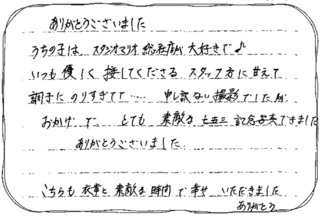 ありがとうございました
うちの子は スタジオマリオ 総社店が 大好きで♪
いつも 優しく 接してくださる スタッフ方に 甘えて
調子にのりすぎてて…… 申し訳ない 撮影でしたが
おかげで とても 素敵な 七五三 記念写真できました
ありがとうございました
こちらも 衣装と 素敵な 時間で 幸せ いただきました
ありがとう